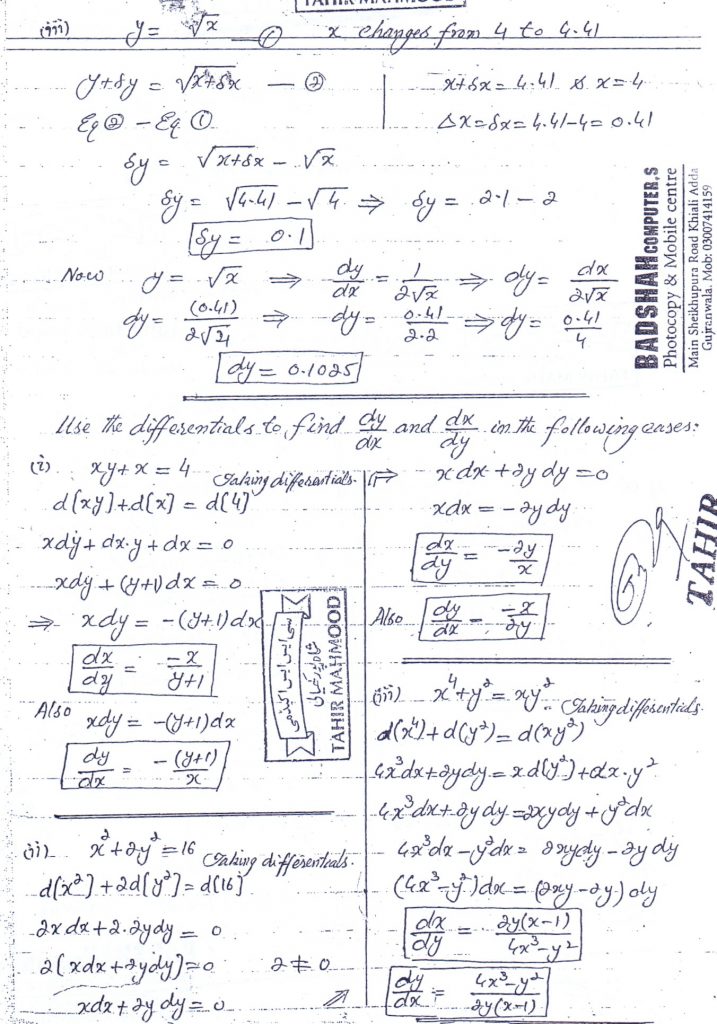 TAHIR MAHMOOD
(iii) y = √x —① x changes from 4 to 4.41
y+δy = √x+δx —②
x+δx = 4.41 & x = 4
Eq ② – Eq ①
Δx = δx = 4.41–4 = 0.41
δy = √x+δx – √x
δy = √4.41 – √4 ⇒ δy = 2.1 – 2
δy = 0.1
Now y = √x ⇒ dy/dx = 1/2√x ⇒ dy = dx/2√x
dy = (0.41)/2√4 ⇒ dy = 0.41/2.2 ⇒ dy = 0.41/4
dy = 0.1025
BADSHAH COMPUTER,S
Photocopy & Mobile centre
Main Sheikhupura Road Khiali Adda
Gujranwala. Mob: 03007414159
Use the differentials to find dy/dx and dx/dy in the following cases:
(i) xy + x = 4 Taking differentials.
d[xy] + d[x] = d[4]
xdy + dx.y + dx = 0
xdy + (y+1)dx = 0
⇒ xdy = –(y+1)dx
dx/dy = –x/y+1
Also xdy = –(y+1)dx
dy/dx = –(y+1)/x
TAHIR MAHMOOD
(ii) x² + 2y² = 16 Taking differentials.
d[x²] + 2d[y²] = d[16]
2xdx + 2.2ydy = 0
2(xdx + 2ydy) = 0 2 ≠ 0
xdx + 2y dy = 0
⇒ xdx + 2y dy = 0
xdx = –2ydy
dx/dy = –2y/x
Also dy/dx = –x/2y
TAHIR
(iii) x⁴ + y² = xy² Taking differentials.
d(x⁴) + d(y²) = d(xy²)
4x³dx + 2ydy = xd(y²) + dx.y²
4x³dx + 2ydy = 2xydy + y²dx
4x³dx – y²dx = 2xydy – 2y dy
(4x³–y²)dx = (2xy–2y) dy
dx/dy = 2y(x–1)/4x³–y²
dy/dx = 4x³–y²/2y(x–1)